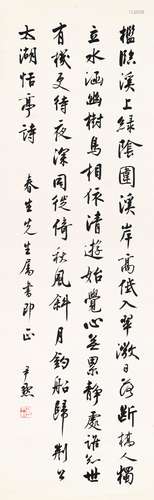 檻臨溪上綠陰圍溪岸高低入翠微日落斷橋人獨
立水涵幽樹鳥相依清遊始覺心無累靜處誰知世
有機更待夜深同徙倚秋風斜月釣船歸荊公
太湖恬亭詩
春生先生屬書即正 尹默